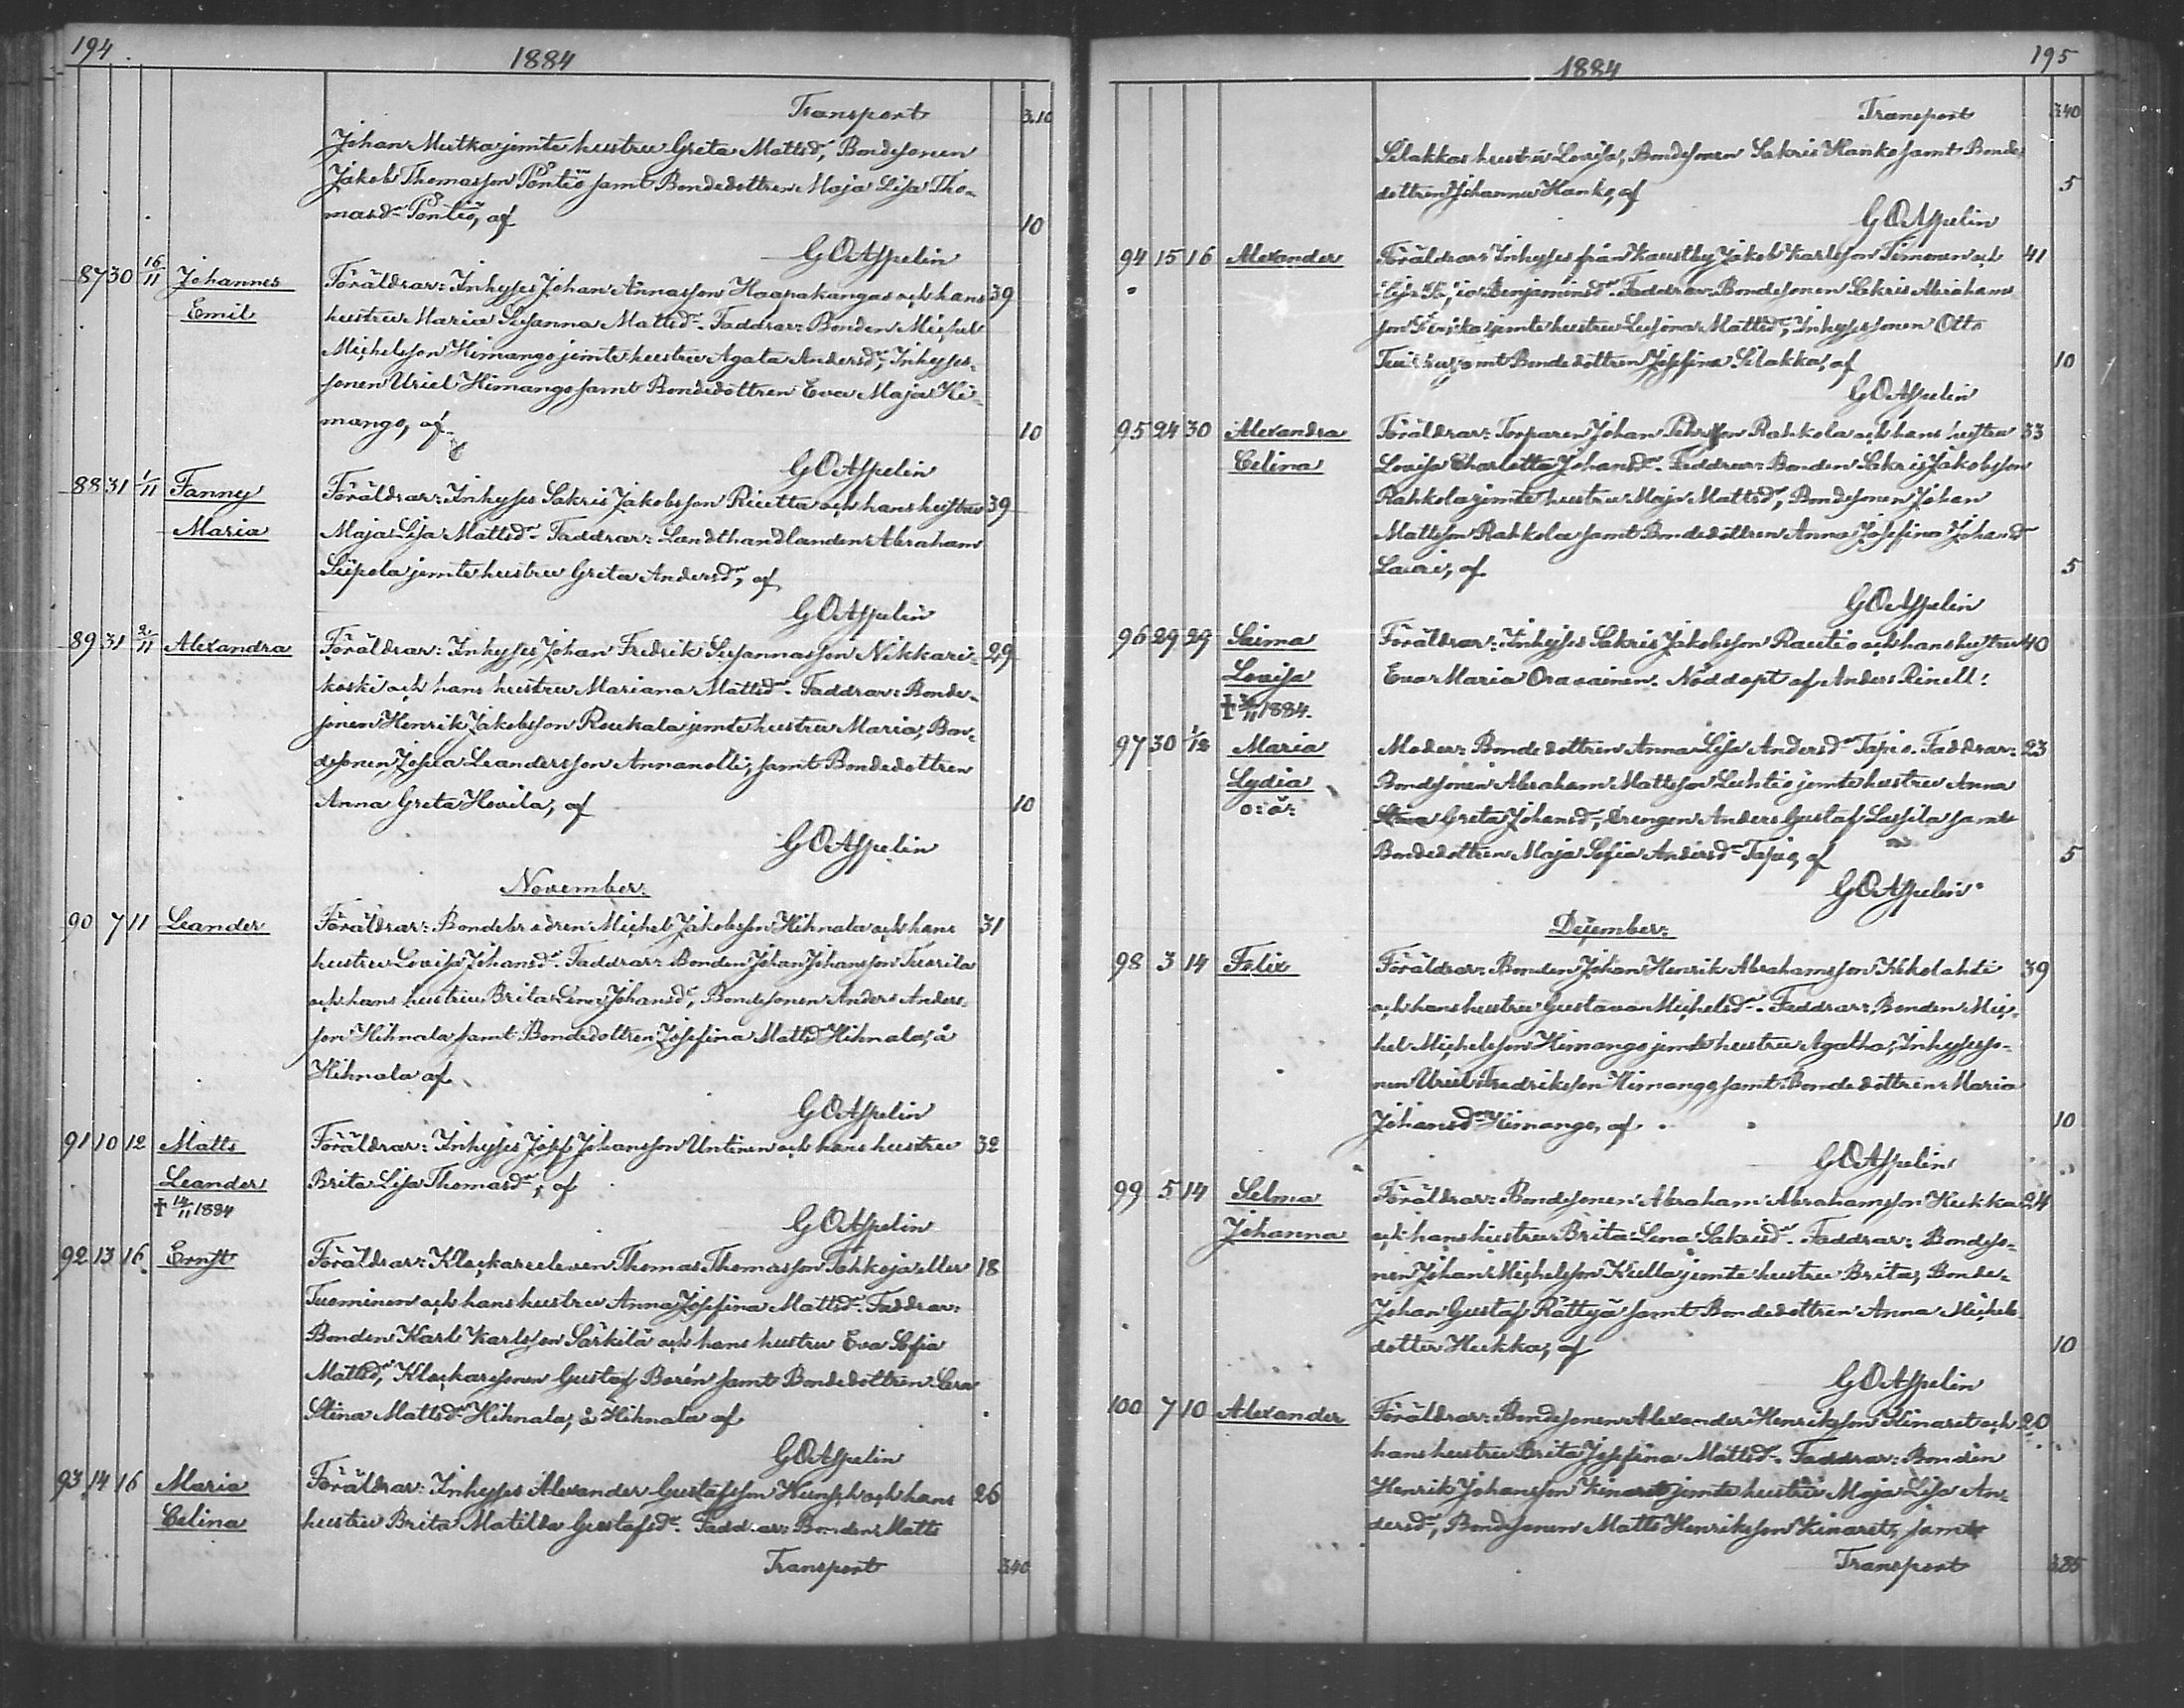 194
1884
Transport 3.10
Johan Mutka jemte hustru Greta Mattsd:r, Bondesonen
Jakob Thomasson Pöntiö samt Bondedottren Maja Lisa Tho-
masd:r Pöntiö, af 10
GOAspelin
87 30 16/11 Johannes Föräldrar: Inhyses Johan Annasson Haapakangas och hans 39
Emil hustru Maria Susanna Mattsd:r. Faddrar: Bonden Michel
Michelsson Himango jemte hustru Agata Andersd:r, Inhyses-
sonen Uriel Himango samt Bondedottren Eva Maja Hi-
mango, af 10
GOAspelin
88 31 1/11 Fanny Föräldrar: Inhyses Sakris Jakobsson Ruetta och hans hustru 39
Maria Maja Lisa Mattsd:r. Faddrar: Landthandlanden Abraham
Siipola jemte hustru Greta Andersd:r, af
GOAspelin
89 31 2/11 Alexandra Föräldrar: Inhyses Johan Fredrik Susannasson Nikkari- 29
koski och hans hustru Mariana Mattsd:r. Faddrar: Bonde-
sonen Henrik Jakobsson Roukala jemte hustru Maria, Bon-
desonen Josua Leandersson Annanolli, samt Bondedottren
Anna Greta Hovila, af 10
GOAspelin
November.
90 7 11 Leander Föräldrar: Bondebrodren Michel Jakobsson Hihnala och hans 31
hustru Lovisa Johansd:r. Faddrar: Bonden Johan Johansson Tuorila
och hans hustru Brita Lena Johansd:r, Bondesonen Anders Anders-
son Hihnala samt Bondedottren Josefina Mattsd:r Hihnala, å
Hihnala af
GOAspelin
91 10 12 Matts Föräldrar: Inhyses Josef Johansson Untinen och hans hustru 32
Leander Brita Lisa Thomasd:r, af
† 14/11 1884
GOAspelin
92 13 16 Ernst Föräldrar: Klockareeleven Thomas Thomasson Tohkoja eller 18
Tuominen och hans hustru Anna Josefina Mattsd:r. Faddrar:
Bonden Karl Karlsson Särkilä och hans hustru Eva Sofia
Mattsd:r, Klockarsonen Gustaf Borén samt Bondedottren Sara
Stina Mattsd:r Hihnala, å Hihnala af
GOAspelin
93 14 16 Maria Föräldrar: Inhyses Alexander Gustafsson Hunsch och hans 26
Celina hustru Brita Matilda Gustafsd:r. Faddrar: Bonden Matts
Transport 3.40
1884
195
Transport 3.40
Silakkas hustru Lovisa, Bondesonen Sakris Hanko samt Bonde-
dottren Johanna Hanko, af 5
GOAspelin
94 15 16 Alexander Föräldrar: Inhyses från Kaustby Jakob Karlsson Timonen och 41
Benjaminsd:r. Faddrar: Bondesonen Sakris Abrahams-
son jemte hustru Susanna Mattsd:r, Inhysessonen Otto
samt Bondedottren Josefina Silakka, af 10
GOAspelin
95 24 30 Alexandra Föräldrar: Torparen Johan Pehrsson Rahkola och hans hustru 33
Celina Lovisa Charlotta Johansd:r. Faddrar: Bonden Sakris Jakobsson
Rahkola jemte hustru Maja Mattsd:r, Bondesonen Johan
Mattsson Rahkola samt Bondedottren Anna Josefina Johansd:r
Lauri, af 5
GOAspelin
96 29 29 Saima Föräldrar: Inhyses Sakris Jakobsson Rautio och hans hustru 40
Lovisa Eva Maria Oravainen. Nöddöpt af Anders Rinell:
† 1884.
97 30 1/12 Maria Moder: Bondedottren Anna Lisa Andersd:r Tapio. Faddrar: 23
Lydia Bondesonen Abraham Mattsson Luhtio jemte hustru Anna
o: ä: Greta Johansd:r, drengen Anders Gustaf Lassila samt
Bondedottren Maja Sofia Andersd:r Tapio, af 5
GOAspelin
December:
98 3 14 Felix Föräldrar: Bonden Johan Henrik Abrahamsson Kekolahti 39
och hans hustru Gustava Michelsd:r. Faddrar: Bonden Mic-
hel Michelsson Himango jemte hustru Agatha, Inhysesso-
nen Uriel Fredriksson Himango samt Bondedottren Maria
Johansd:r Himango, af 10
GOAspelin
99 5 14 Selma Föräldrar: Bondesonen Abraham Abrahamsson Hukka 24
Johanna och hans hustru Brita Lena Sakrisd:r. Faddrar: Bondeso-
nen Johan Michelsson Kiella jemte hustru Brita, Bonde-
Johan Gustaf Rättyä samt Bondedottren Anna Michels-
dotter Hukka, af 10
GOAspelin
100 7 10 Alexander Föräldrar: Bondesonen Alexander Henriksson Kinaret och 20
hans hustru Brita Josefina Mattsd:r. Faddrar: Bonden
Henrik Johansson Kinaret jemte hustru Maja Lisa An-
dersd:r, Bondesonen Matts Henriksson Kinaret, samt
Transport 3.85